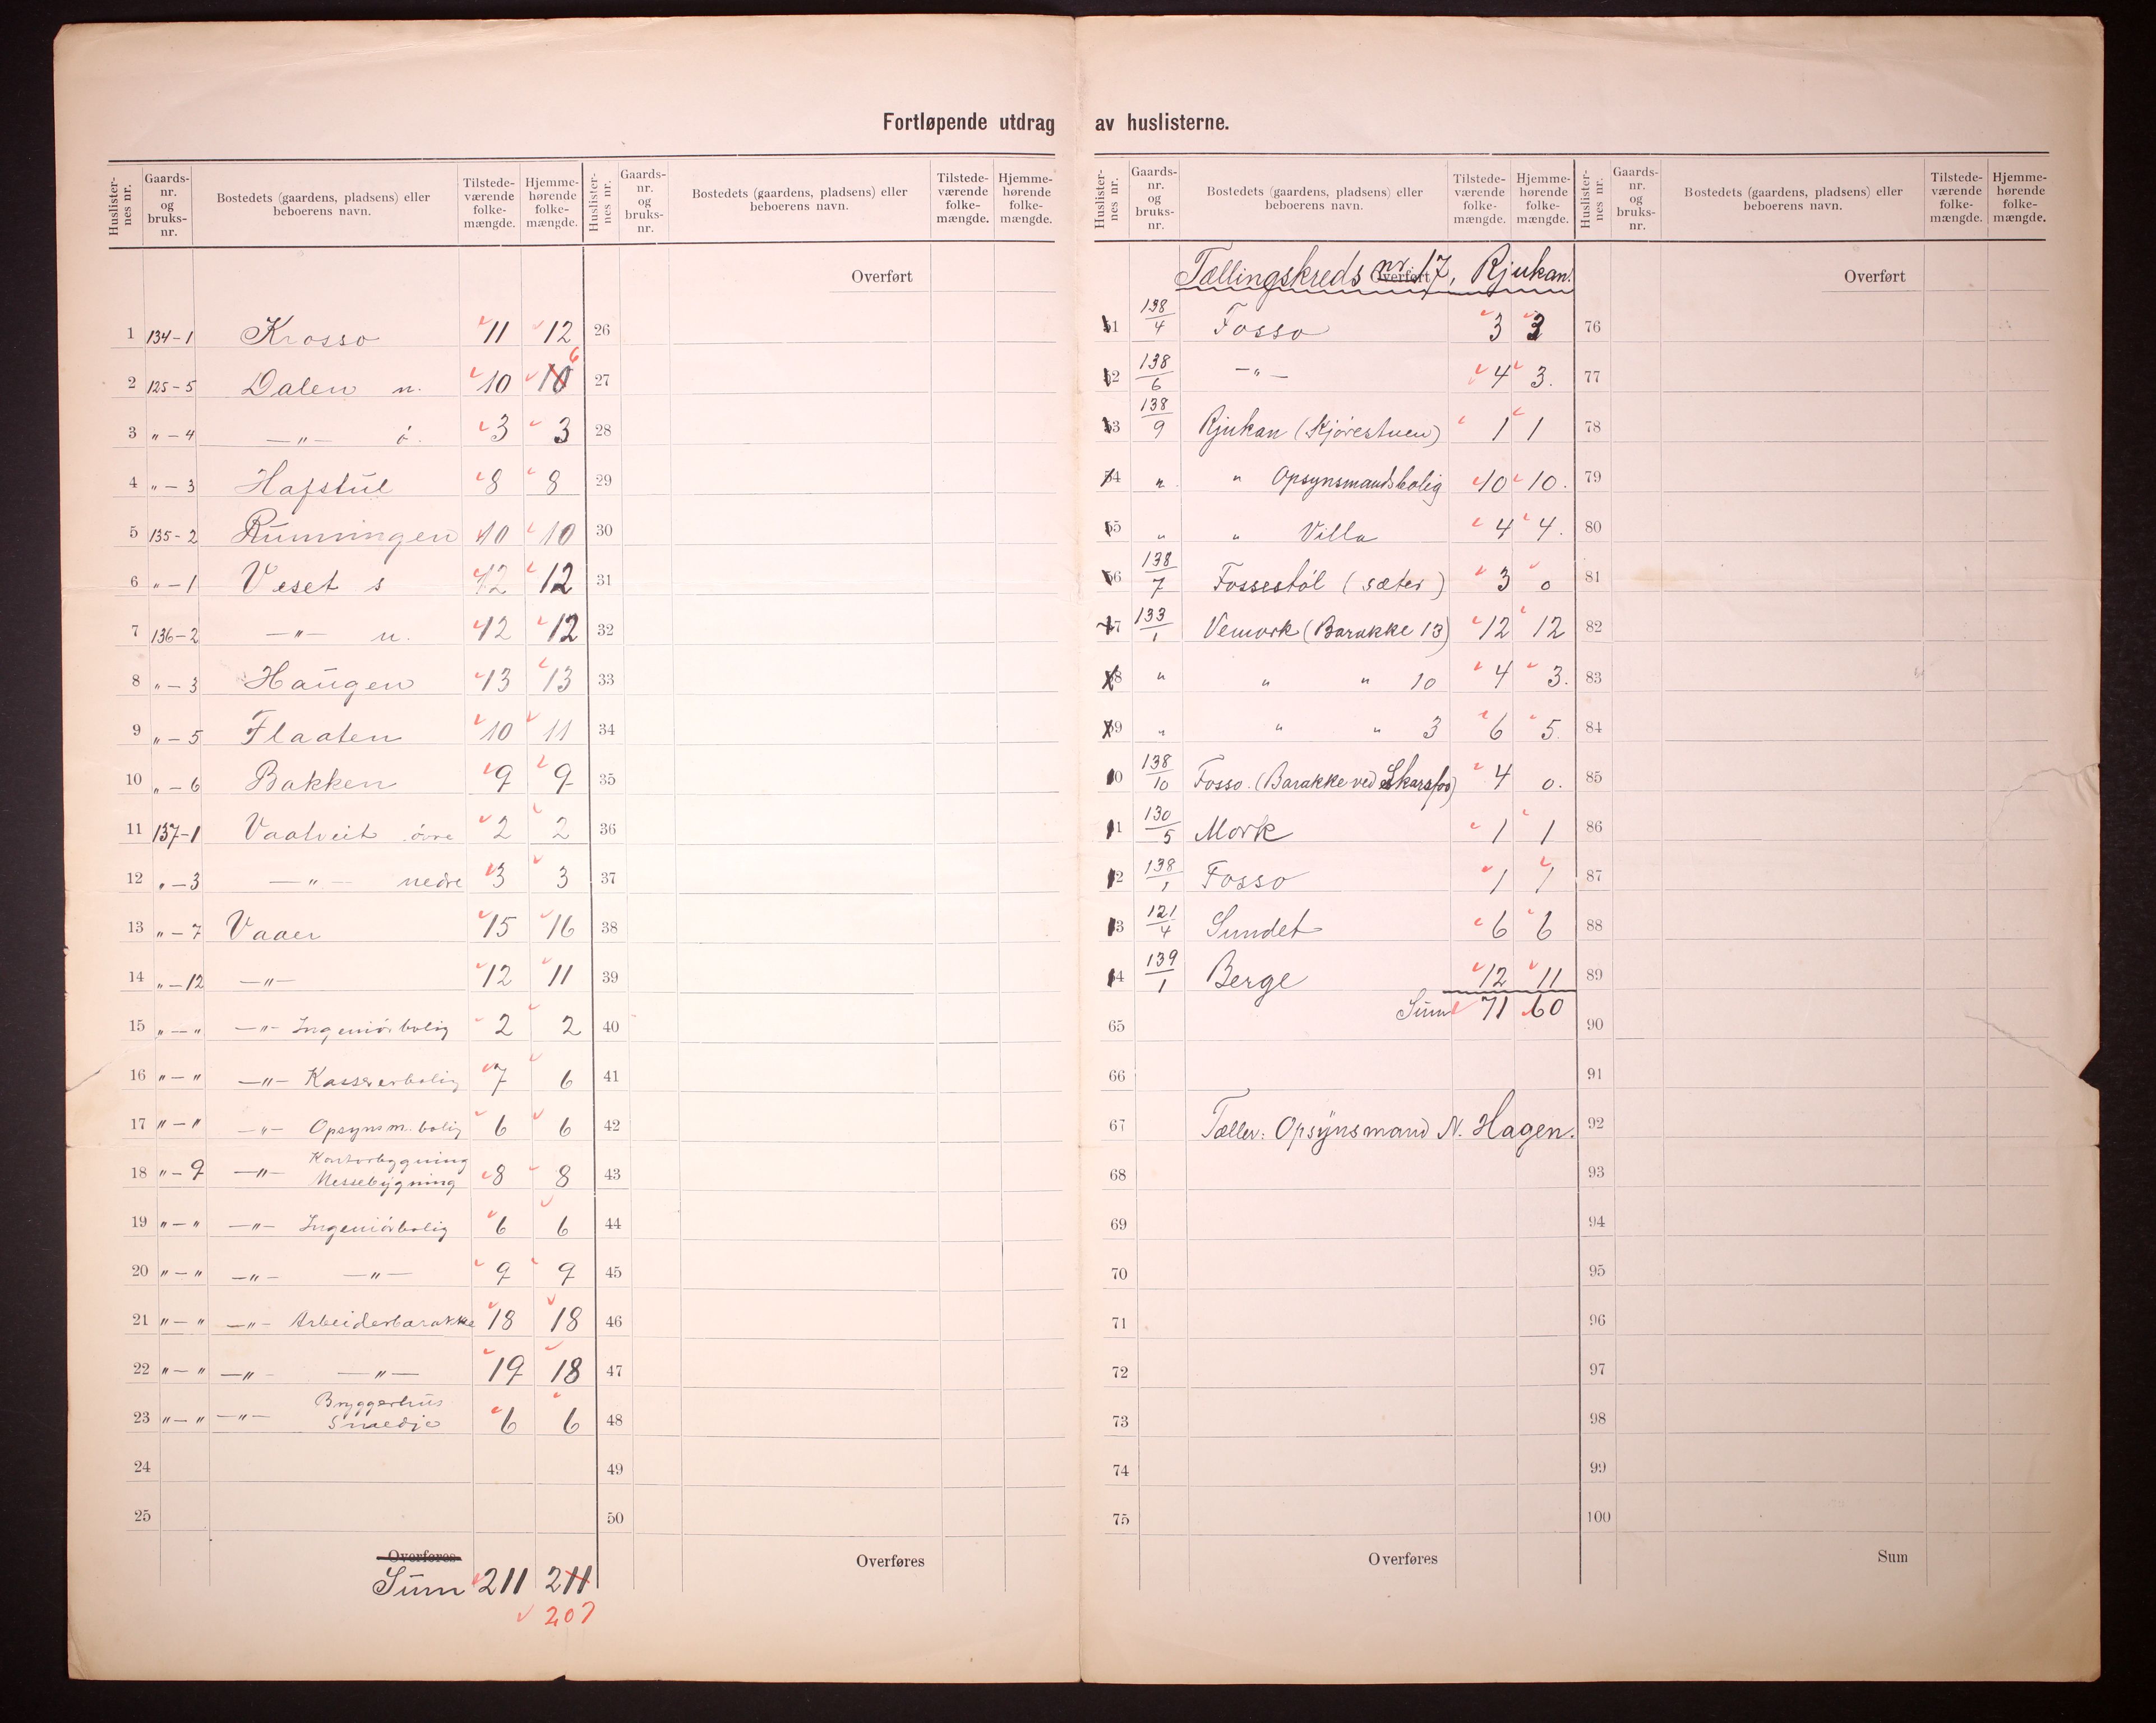 Fortløpende utdrag av huslisterne.
Huslister-nes nr. Gaards-nr. og bruks-nr. Bostedets (gaardens, pladsens) eller beboerens navn. Tilstede-værende folke-mængde. Hjemme-hørende folke-mængde.
Huslister-nes nr. Gaards-nr. og bruks-nr. Bostedets (gaardens, pladsens) eller beboerens navn. Tilstede-værende folke-mængde. Hjemme-hørende folke-mængde.
Overført
1 134-1 Krosso 11 12
2 125-5 Dalen n. 10 10 6
3 „ - 4 —„— ö. 3 3
4 „ - 3 Hafstul 8 8
5 135-2 Runningen 10 10
6 „ - 1 Veset s 12 12
7 136-2 —„— n. 12 12
8 „ - 3 Haugen 13 13
9 „ - 5 Flaaten 10 11
10 „ - 6 Bakken 9 9
11 137-1 Vaatveit övre 2 2
12 „ - 3 —„— nedre 3 3
13 „ - 7 Vaaer 15 16
14 „ - 12 —„— 12 11
15 „ - „ —„— Ingeniörbolig 2 2
16 „ - „ —„— Kassererbolig 7 6
17 „ - „ —„— Opsynsm. bolig 6 6
18 „ - 9 —„— Kontorbygning
Messebygning 8 8
19 „ - „ —„— Ingeniörbolig 6 6
20 „ - „ —„— —„— 9 9
21 „ - „ —„— Arbeiderbarakke 18 18
22 „ - „ —„— —„— 19 18
23 „ - „ —„— Bryggerhus
Smedje 6 6
24
25
Overføres
Sum 211 211
207
26
27
28
29
30
31
32
33
34
35
36
37
38
39
40
41
42
43
44
45
46
47
48
49
50
Overføres
Huslister-nes nr. Gaards-nr. og bruks-nr. Bostedets (gaardens, pladsens) eller beboerens navn. Tilstede-værende folke-mængde. Hjemme-hørende folke-mængde.
Huslister-nes nr. Gaards-nr. og bruks-nr. Bostedets (gaardens, pladsens) eller beboerens navn. Tilstede-værende folke-mængde. Hjemme-hørende folke-mængde.
Overført
Tællingskreds nr. 17, Rjukan.
1 138/4 Fosso 3 3
2 138/6 —„— 4 3.
3 138/9 Rjukan (Kjörestuen) 1 1
4 „ „ Opsynsmandsbolig 10 10.
5 „ „ Villa 4 4.
6 138/7 Fossestöl (sæter) 3 0
7 133/1 Vemork (Barakke 13) 12 12
8 „ „ „ 10 4 3.
9 „ „ „ 3 6 5.
10 138/10 Fosso. (Barakke ved Skarsfos) 4 0.
11 130/5 Mork 1 1
12 138/1 Fosso 1 1
13 121/4 Sundet 6 6
14 139/1 Berge 12 11
65 Sum 71 60
66
67 Tæller: Opsynsmand N. Hagen.
68
69
70
71
72
73
74
75
Overføres
Overført
76
77
78
79
80
81
82
83
84
85
86
87
88
89
90
91
92
93
94
95
96
97
98
99
100
Sum